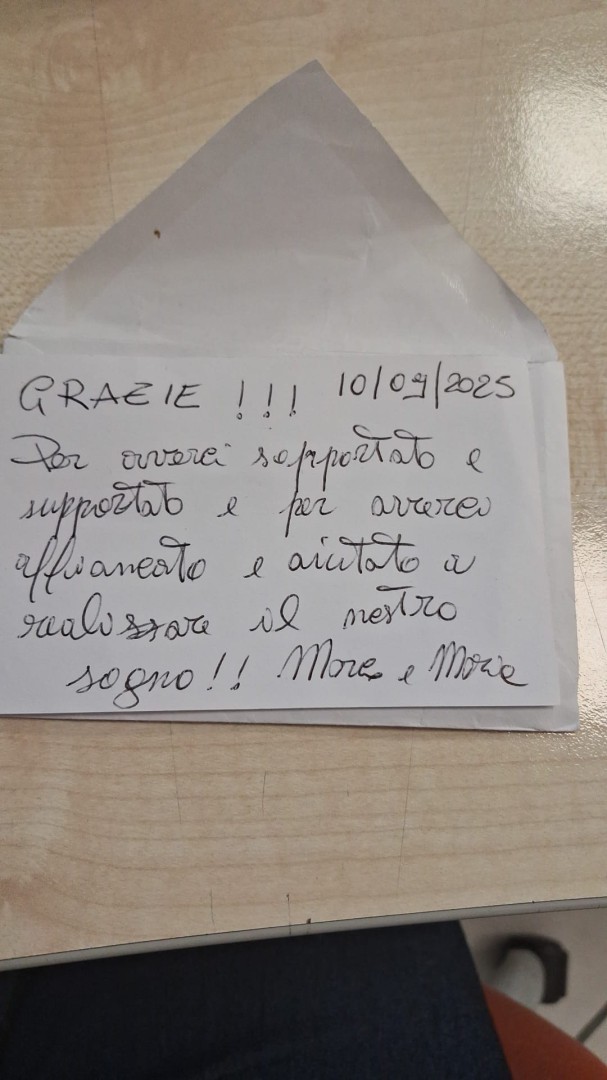 GRAZIE !!! 10/09/2025
Per averci sopportato e
supportato e per averci
affiancato e aiutato a
realizzare il nostro
sogno!! e